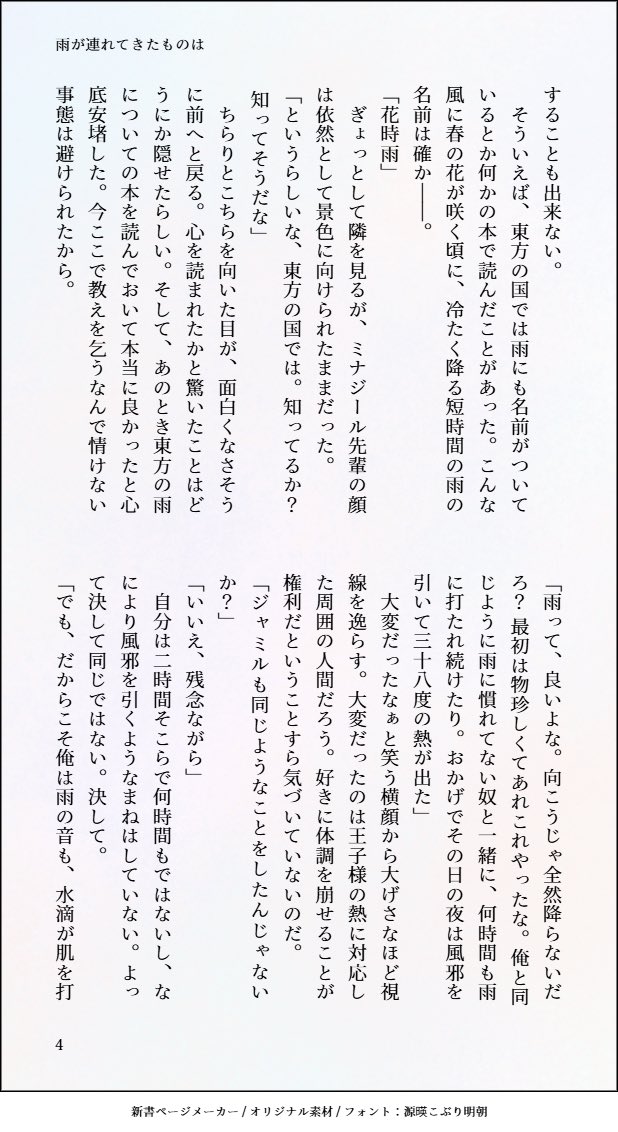 雨が連れてきたものは
することも出来ない。
そういえば、東方の国では雨にも名前がついて
いるとか何かの本で読んだことがあった。こんな
風に春の花が咲く頃に、冷たく降る短時間の雨の
名前は確か――。
「花時雨」
ぎょっとして隣を見るが、ミナジール先輩の顔
は依然として景色に向けられたままだった。
「というらしいな、東方の国では。知ってるか?
知ってそうだな」
ちらりとこちらを向いた目が、面白くなさそう
に前へと戻る。心を読まれたかと驚いたことはど
うにか隠せたらしい。そして、あのとき東方の雨
についての本を読んでおいて本当に良かったと心
底安堵した。今ここで教えを乞うなんで情けない
事態は避けられたから。
「雨って、良いよな。向こうじゃ全然降らないだ
ろ? 最初は物珍しくてあれこれやったな。俺と同
じように雨に慣れてない奴と一緒に、何時間も雨
に打たれ続けたり。おかげでその日の夜は風邪を
引いて三十八度の熱が出た」
大変だったなぁと笑う横顔から大げさなほど視
線を逸らす。大変だったのは王子様の熱に対応し
た周囲の人間だろう。好きに体調を崩せることが
権利だということすら気づいていないのだ。
「ジャミルも同じようなことをしたんじゃない
か?」
「いいえ、残念ながら」
自分は二時間そこらで何時間もではないし、な
により風邪を引くようなまねはしていない。よっ
て決して同じではない。決して。
「でも、だからこそ俺は雨の音も、水滴が肌を打
4
新書ページメーカー / オリジナル素材 / フォント:源暎こぶり明朝